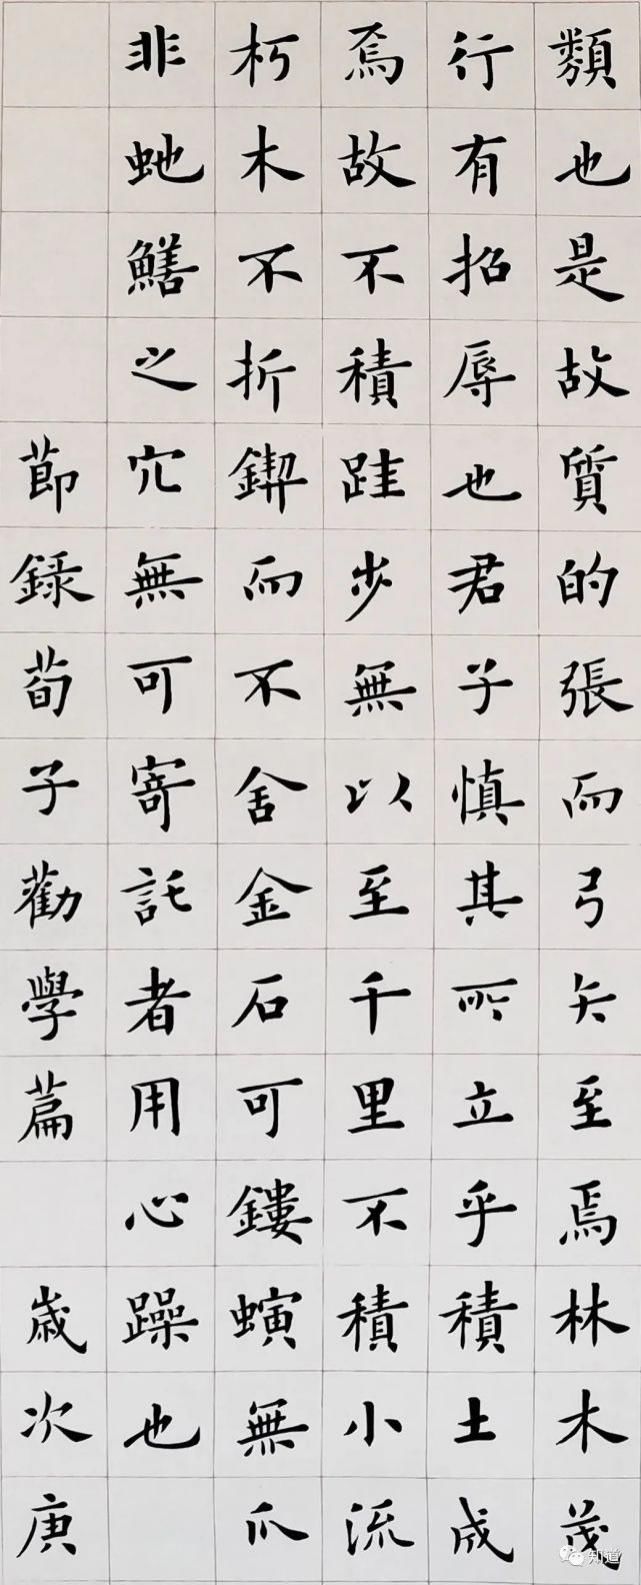 類也是故質的張而弓矢至焉林木茂
行有招辱也君子慎其所立乎積土成
焉故不積跬步無以至千里不積小流
朽木不折鍥而不舍金石可鏤螾無爪
非虵鱔之穴無可寄託者用心躁也
節録荀子勸學篇 歲次庚
知道